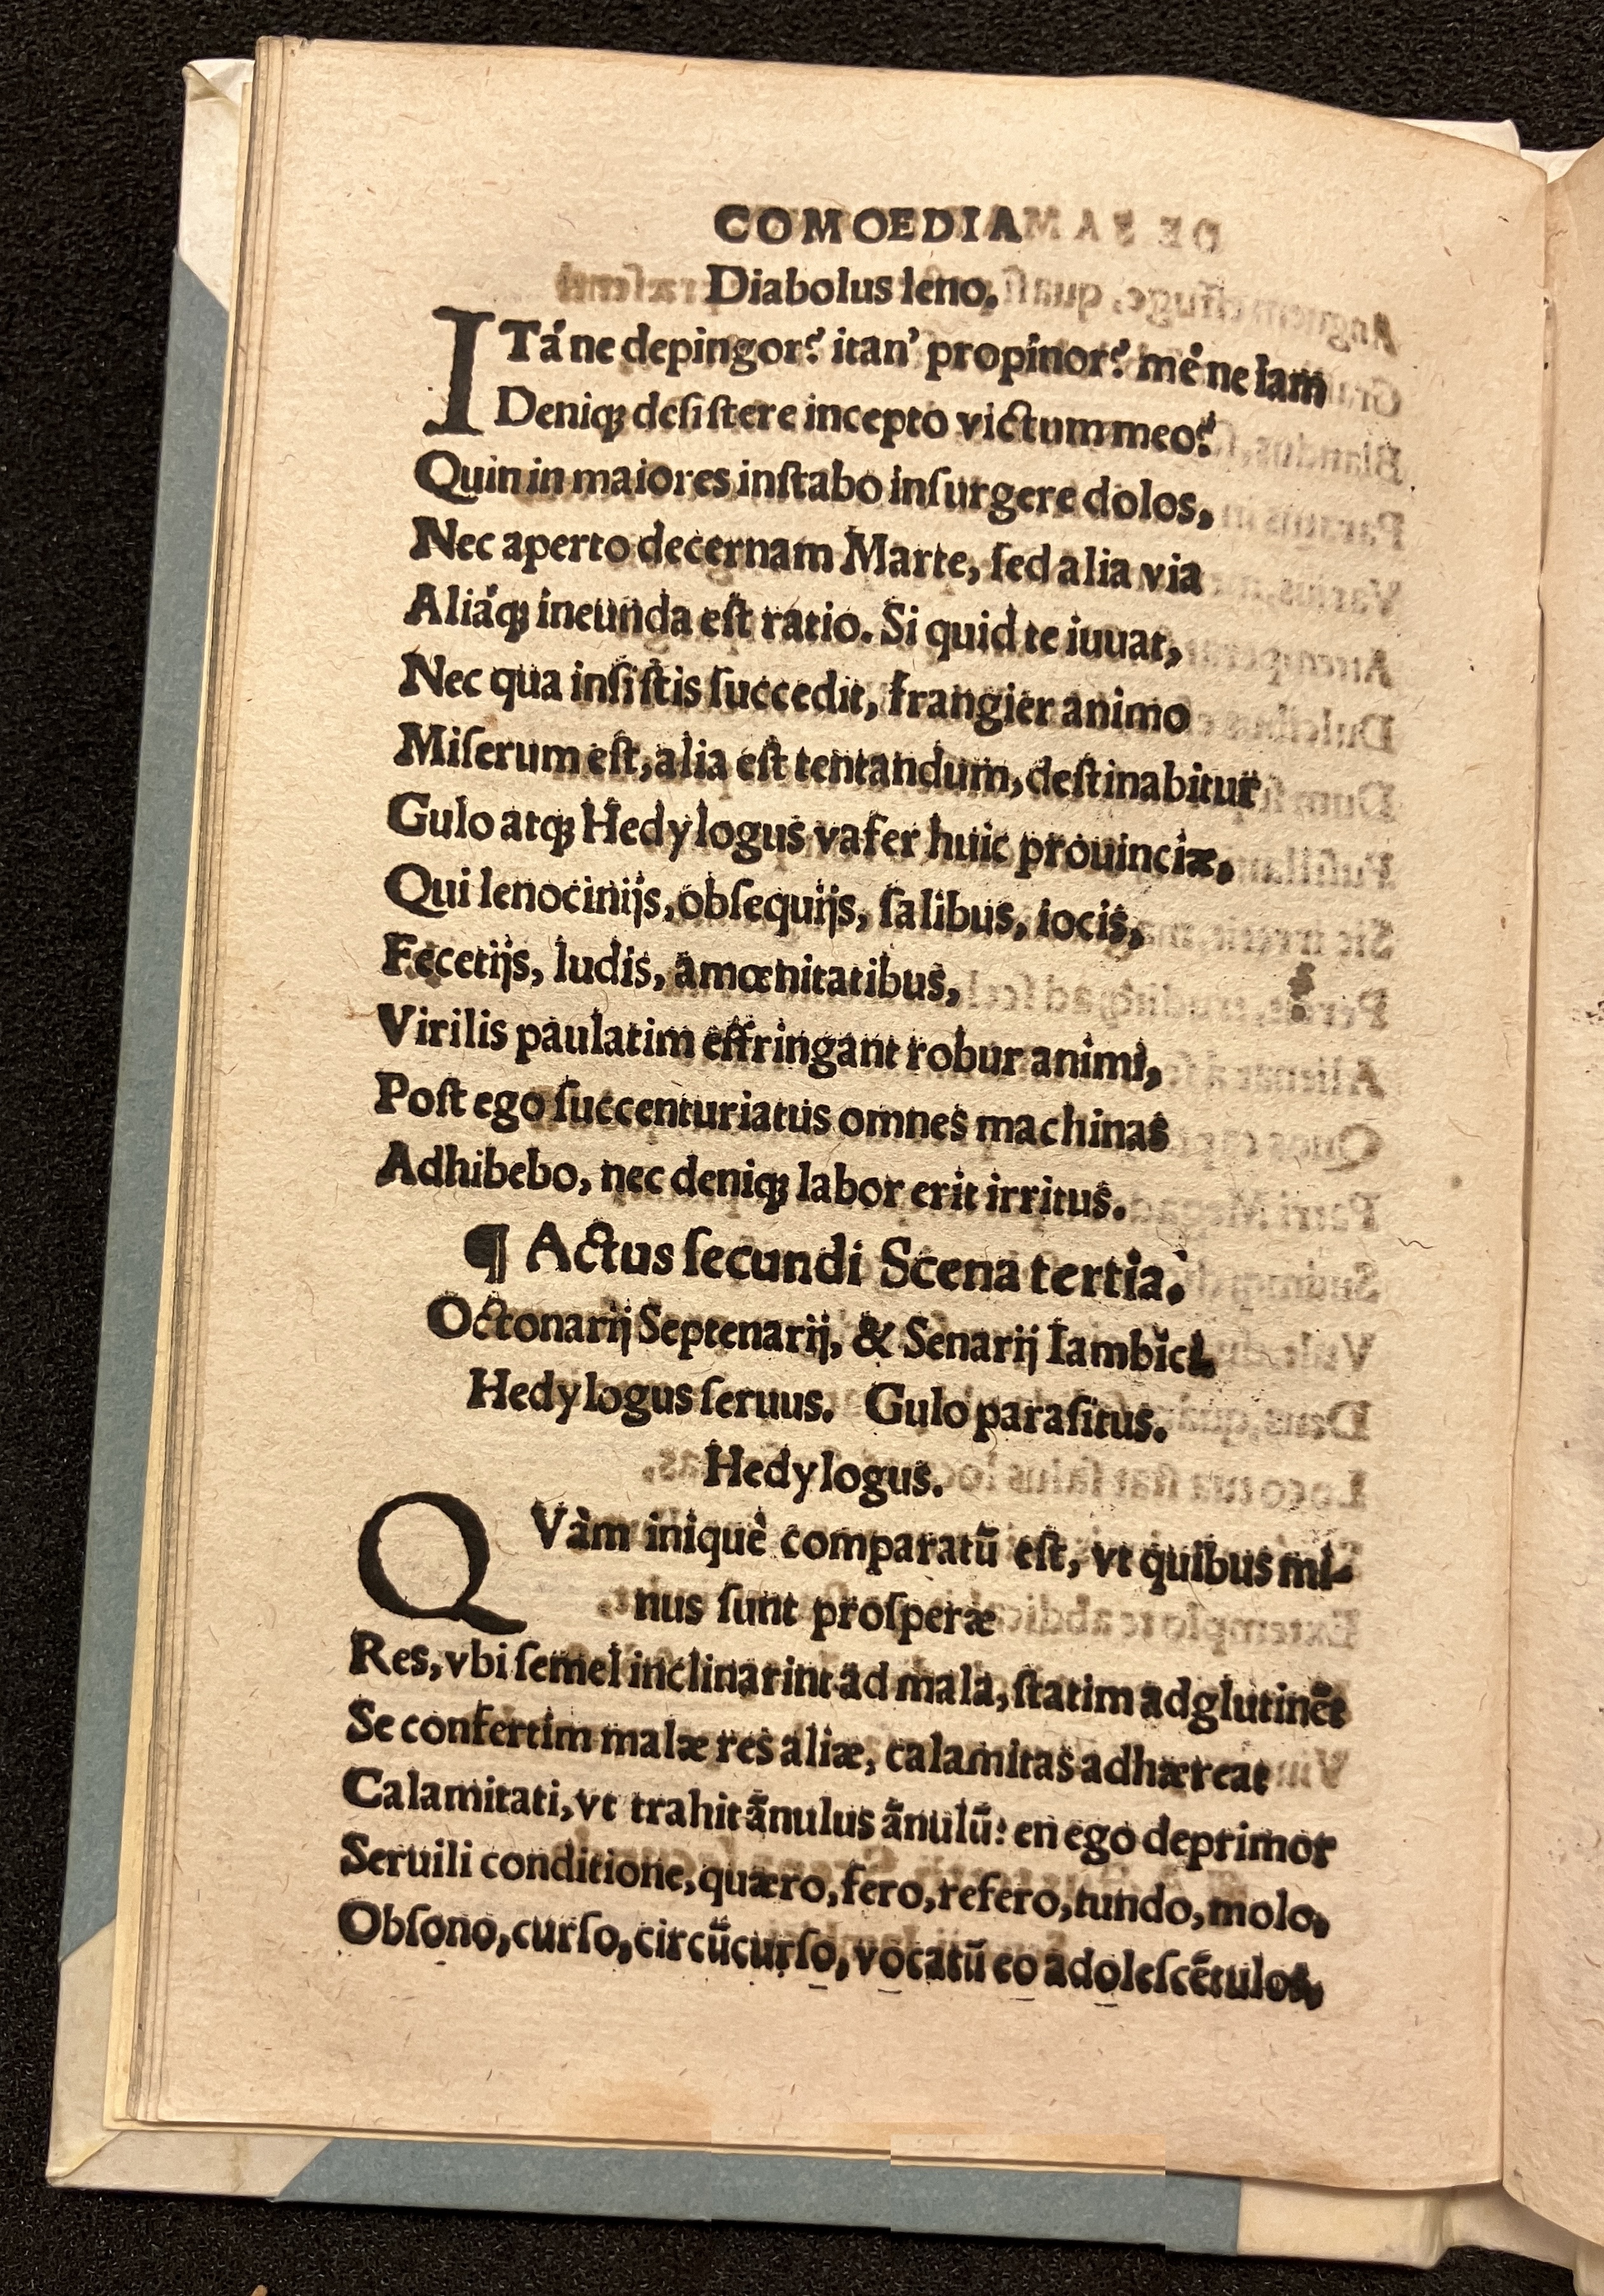 COMOEDIA
Diabolus leno.
ITá ne depingor? itan' propinor? mé ne iam
Deniq; desistere incepto victum meo?
Quin in maiores instabo insurgere dolos,
Nec aperto decernam Marte, sed alia via
Aliáq; ineunda est ratio. Si quid te iuuat,
Nec qua insistis succedit, frangier animo
Miserum est, alia est tentandum, destinabitur
Gulo atq; Hedylogus vafer huic prouinciæ,
Qui lenocinijs, obsequijs, salibus, iocis,
Fecetijs, ludis, amœnitatibus,
Virilis paulatim effringant robur animi,
Post ego succenturiatus omnes machinas
Adhibebo, nec deniq; labor erit irritus.
¶ Actus secundi Scena tertia.
Octonarij Septenarij, & Senarij Iambici.
Hedylogus seruus. Gulo parasitus.
Hedylogus.
QVàm iniquè comparatū est, vt quibus mi-
nus sunt prosperæ
Res, vbi semel inclinarint ad mala, statim adglutinēt
Se confertim malæ res aliæ, calamitas adhæreat
Calamitati, vt trahit ānulus ānulū: en ego deprimor
Seruili conditione, quæro, fero, refero, tundo, molo,
Obsono, curso, circūcurso, vocatū eo adolescētulos,